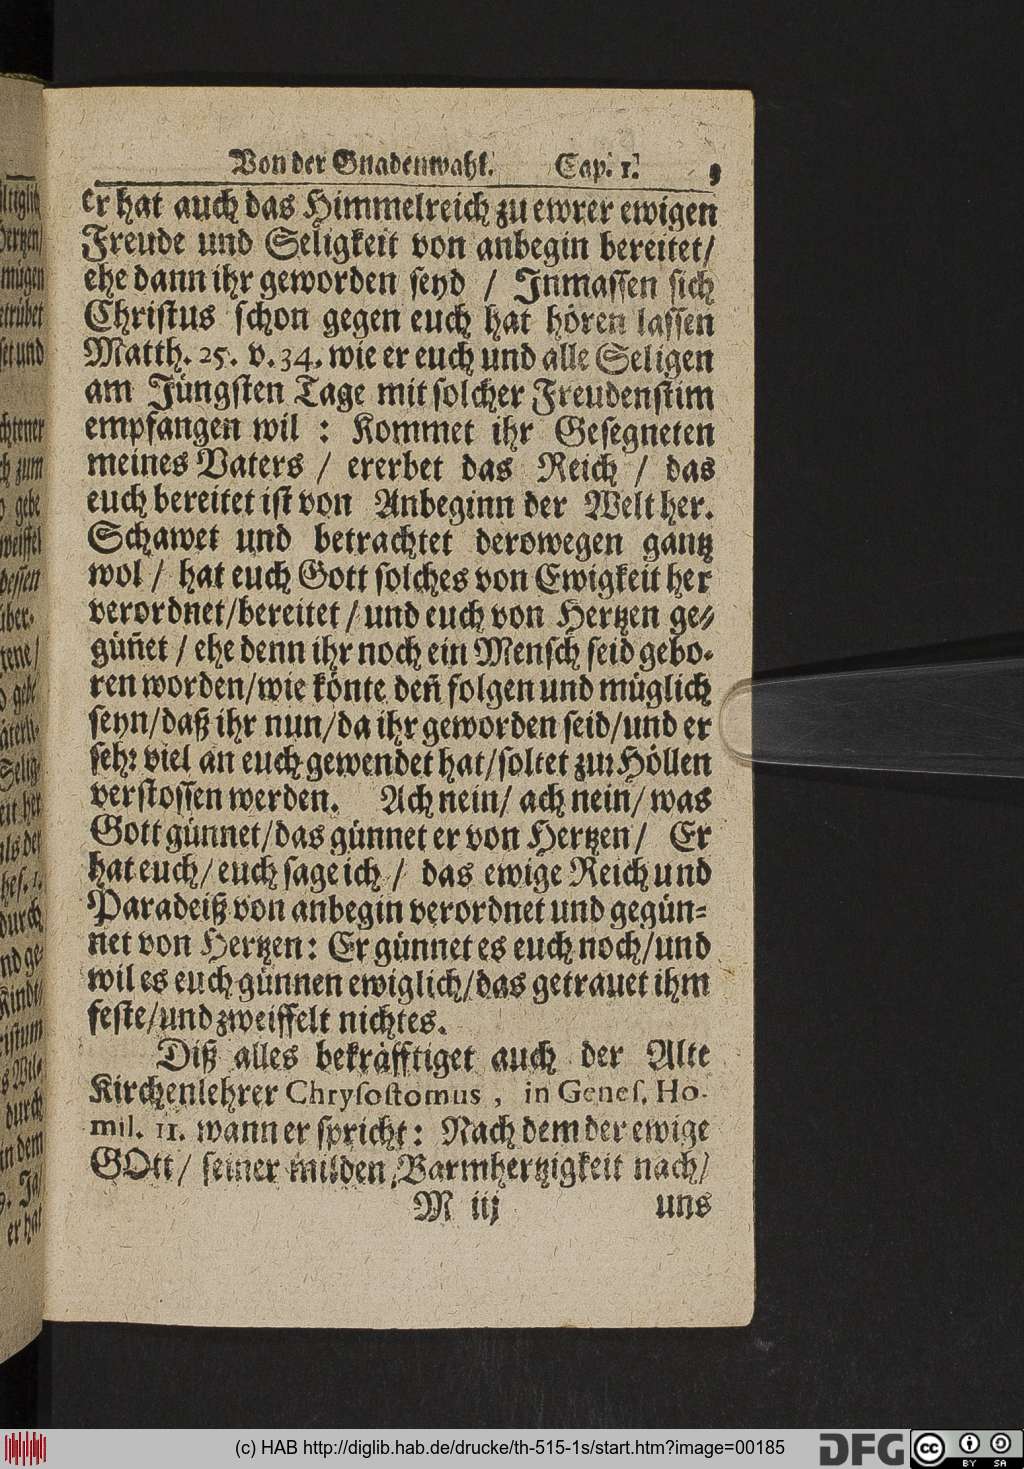 Von der Gnadenwahl. Cap. 1. 9
er hat auch das Himmelreich zu ewrer ewigen
Freude und Seligkeit von anbegin bereitet/
ehe dann ihr geworden seyd / Inmassen sich
Christus schon gegen euch hat hören lassen
Matth. 25. v. 34. wie er euch und alle Seligen
am Jüngsten Tage mit solcher Freudenstim
empfangen wil : Kommet ihr Gesegneten
meines Vaters / ererbet das Reich / das
euch bereitet ist von Anbeginn der Welt her.
Schawet und betrachtet derowegen gantz
wol / hat euch Gott solches von Ewigkeit her
verordnet/bereitet / und euch von Hertzen ge-
güñet / ehe denn ihr noch ein Mensch seid gebo-
ren worden/wie könte deñ folgen und müglich
seyn/daß ihr nun/da ihr geworden seid/und er
sehr viel an euch gewendet hat/soltet zur Höllen
verstossen werden. Ach nein/ ach nein/ was
Gott günnet/das günnet er von Hertzen/ Er
hat euch/ euch sage ich / das ewige Reich und
Paradeiß von anbegin verordnet und gegün-
net von Hertzen: Er günnet es euch noch/und
wil es euch günnen ewiglich/das getrauet ihm
feste/und zweiffelt nichtes.
Diß alles bekräfftiget auch der Alte
Kirchenlehrer Chrysostomus, in Genes. Ho-
mil. 11. wann er spricht: Nach dem der ewige
GOtt/ seiner milden Barmhertzigkeit nach/
M iij uns
ltiglich
Hertzen/
mügen
etrübet
set und
chtener
ch zum
o gebe
weiffel
dessen
über-
tene/
o gebe
äterli-
Selig-
eit her
als der
hes. 1.
durch
nd ge-
Kinde/
ristum
s Wil-
durch
in dem
9. Ja/
er hat
(c) HAB http://diglib.hab.de/drucke/th-515-1s/start.htm?image=00185
DFG
cc BY SA